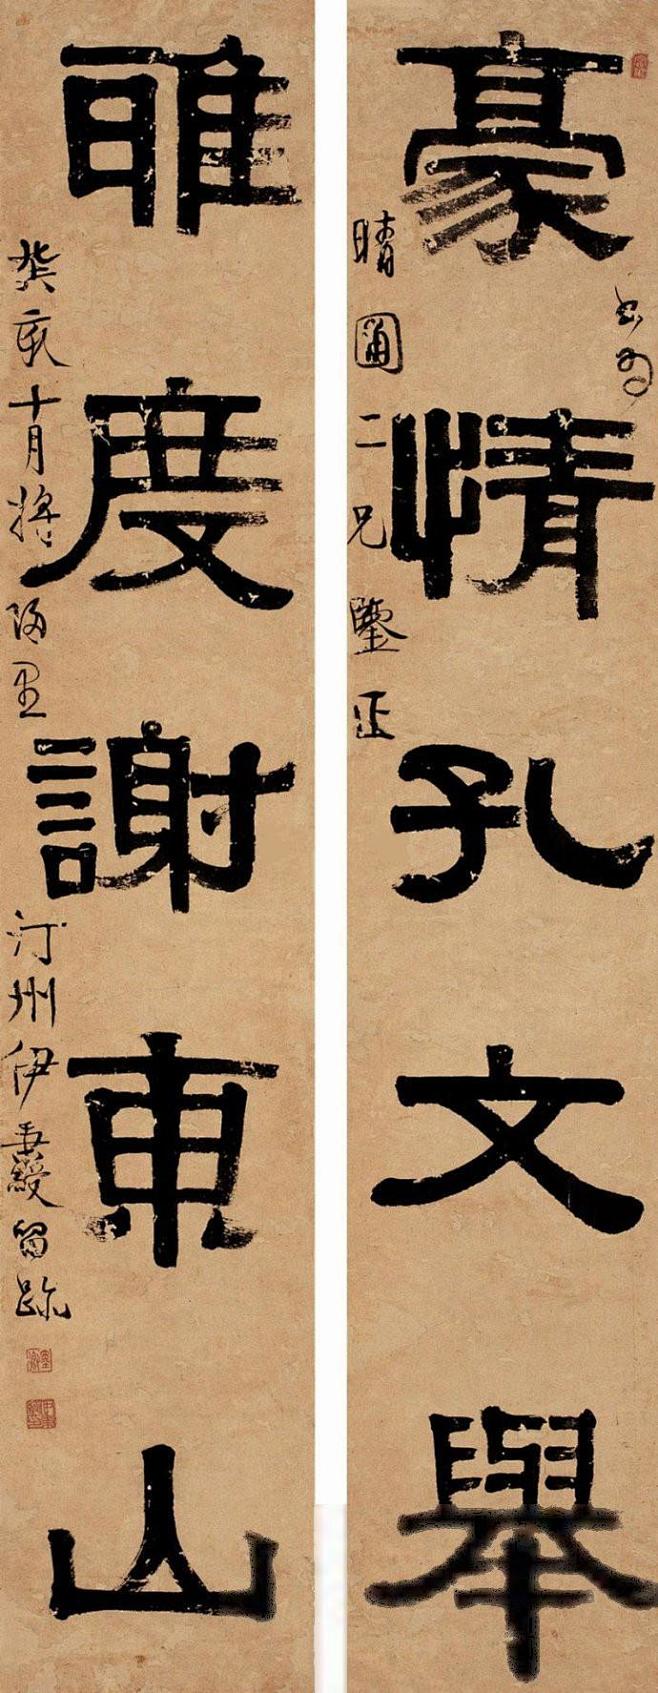 書為
豪情孔文舉
晴圃二兄鑒正
雅度謝東山
癸亥十月將歸里 汀州伊秉綬留跡